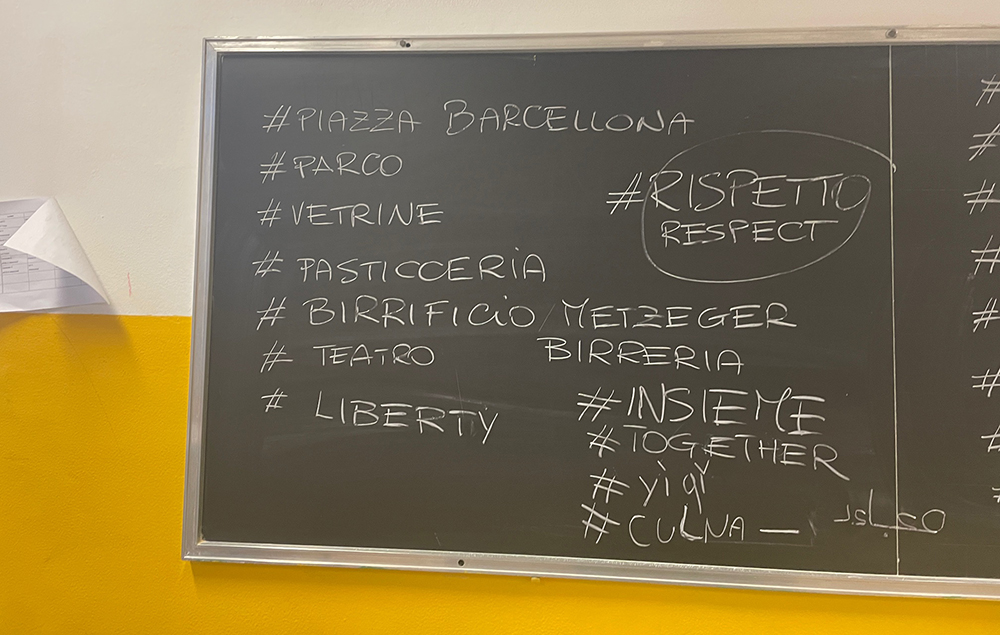 #PIAZZA BARCELLONA
#PARCO
#VETRINE
#PASTICCERIA
#BIRRIFICIO/METZEGER
BIRRERIA
#TEATRO
#LIBERTY
#RISPETTO
RESPECT
#INSIEME
#TOGETHER
#yì qǐ
#CULNA —
#
#
#
#
#
#
#